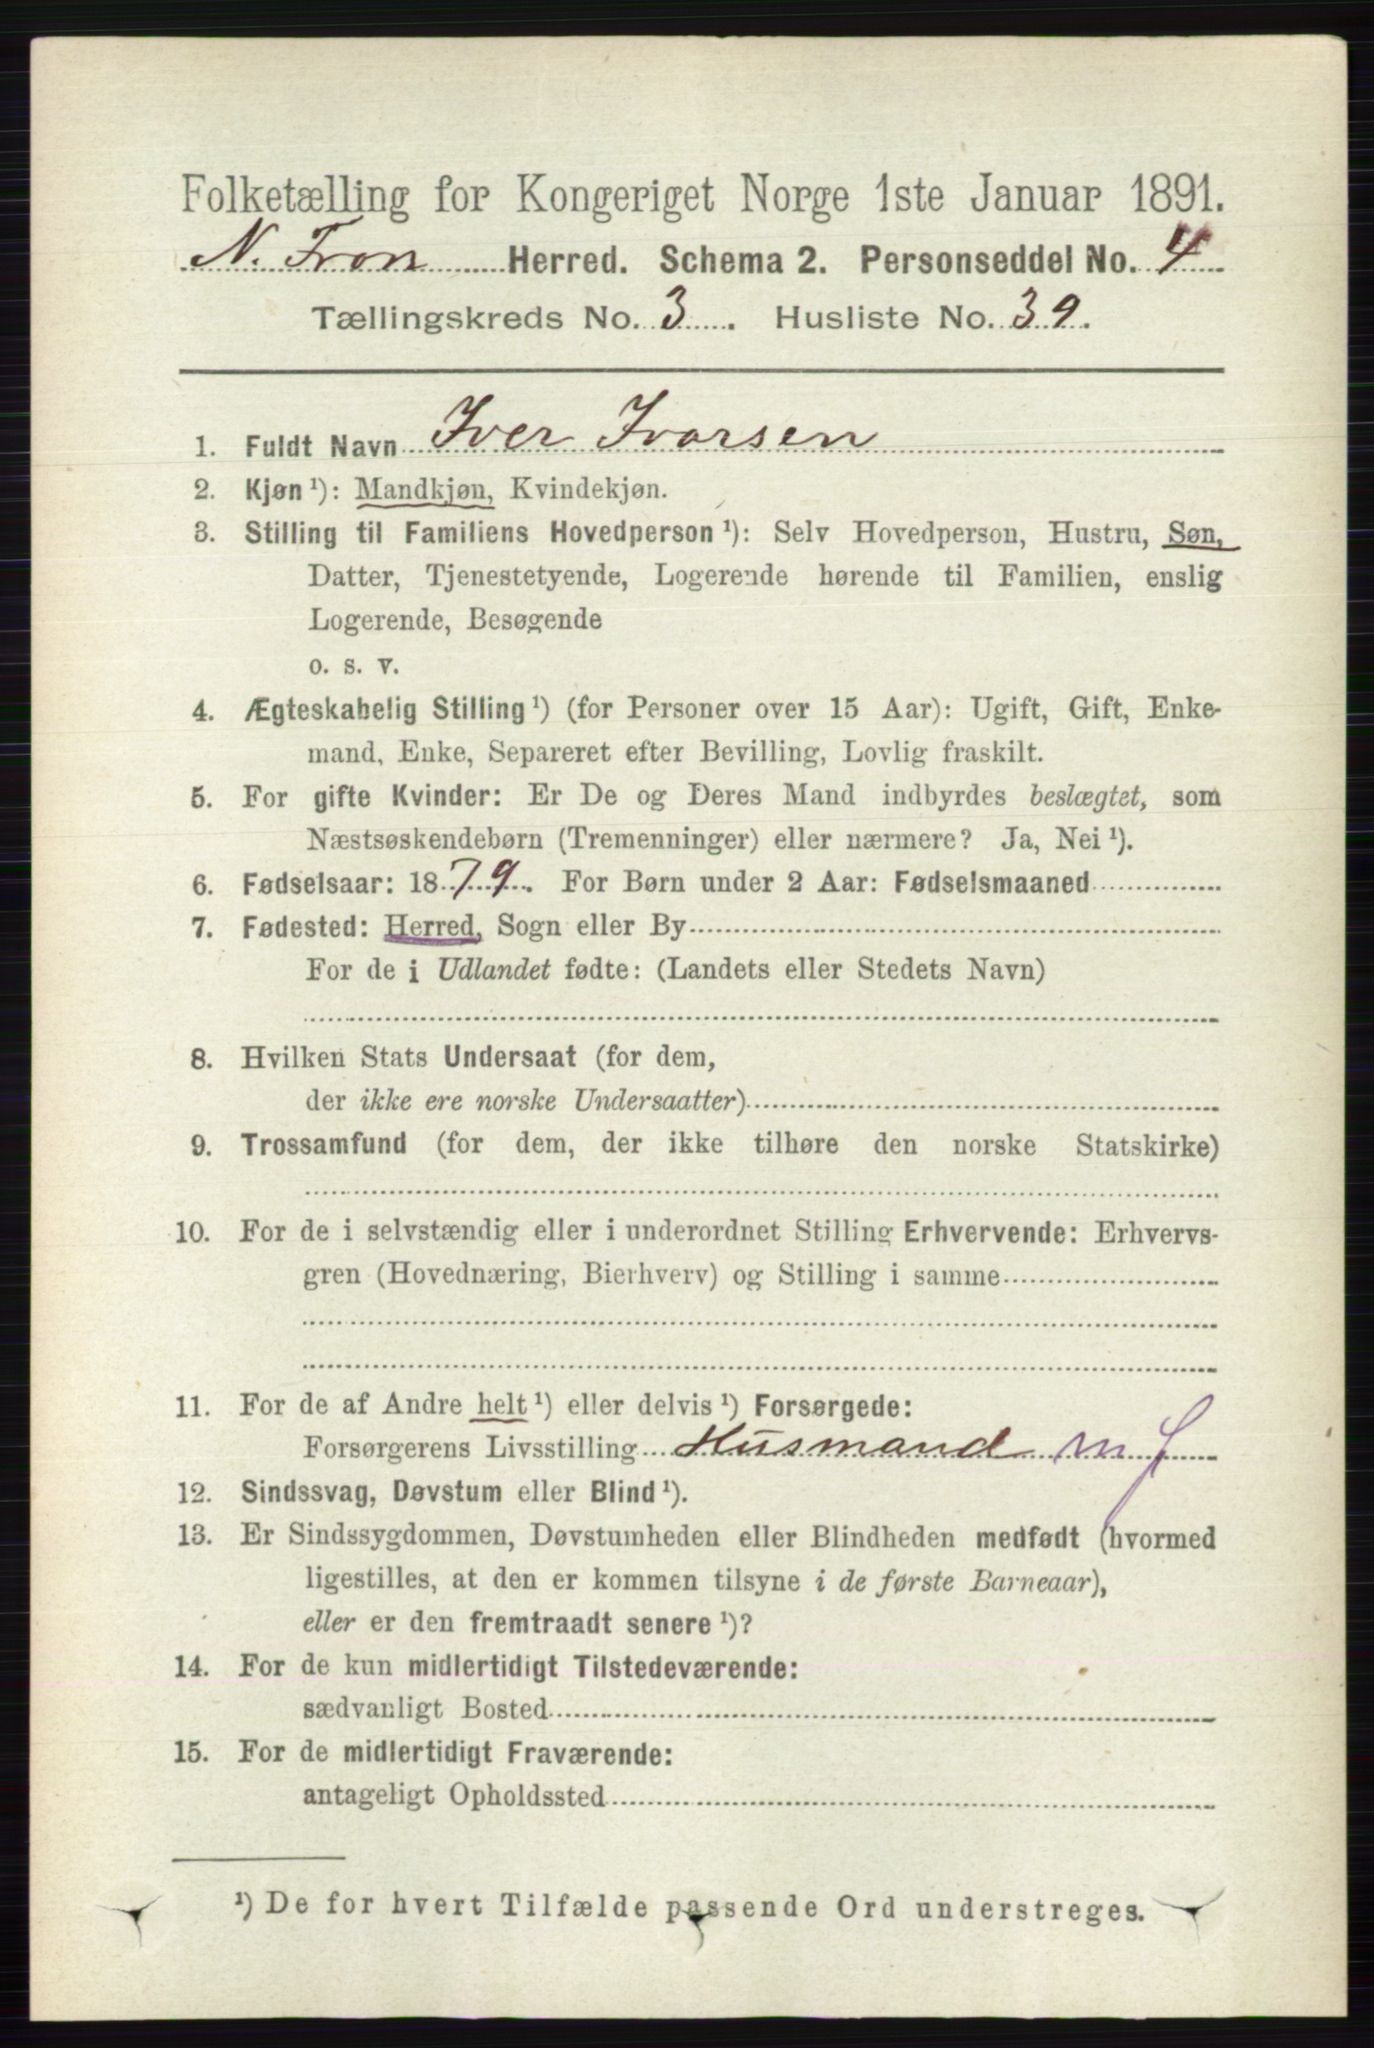 Folketælling for Kongeriget Norge 1ste Januar 1891.
N. Fron Herred. Schema 2. Personseddel No. 4
Tællingskreds No. 3. Husliste No. 39.
1. Fuldt Navn Iver Ivarsen
2. Kjøn¹): Mandkjøn, Kvindekjøn.
3. Stilling til Familiens Hovedperson¹): Selv Hovedperson, Hustru, Søn,
Datter, Tjenestetyende, Logerende hørende til Familien, enslig
Logerende, Besøgende
o. s. v.
4. Ægteskabelig Stilling¹) (for Personer over 15 Aar): Ugift, Gift, Enke-
mand, Enke, Separeret efter Bevilling, Lovlig fraskilt.
5. For gifte Kvinder: Er De og Deres Mand indbyrdes beslægtet, som
Næstsøskendebørn (Tremenninger) eller nærmere? Ja, Nei¹).
6. Fødselsaar: 1879. For Børn under 2 Aar: Fødselsmaaned
7. Fødested: Herred, Sogn eller By
For de i Udlandet fødte: (Landets eller Stedets Navn)
8. Hvilken Stats Undersaat (for dem,
der ikke ere norske Undersaatter)
9. Trossamfund (for dem, der ikke tilhøre den norske Statskirke)
10. For de i selvstændig eller i underordnet Stilling Erhvervende: Erhvervs-
gren (Hovednæring, Bierhverv) og Stilling i samme
11. For de af Andre helt¹) eller delvis¹) Forsørgede:
Forsørgerens Livsstilling Husmand m J
12. Sindssvag, Døvstum eller Blind¹).
13. Er Sindssygdommen, Døvstumheden eller Blindheden medfødt (hvormed
ligestilles, at den er kommen tilsyne i de første Barneaar),
eller er den fremtraadt senere¹)?
14. For de kun midlertidigt Tilstedeværende:
sædvanligt Bosted
15. For de midlertidigt Fraværende:
antageligt Opholdssted
¹) De for hvert Tilfælde passende Ord understreges.